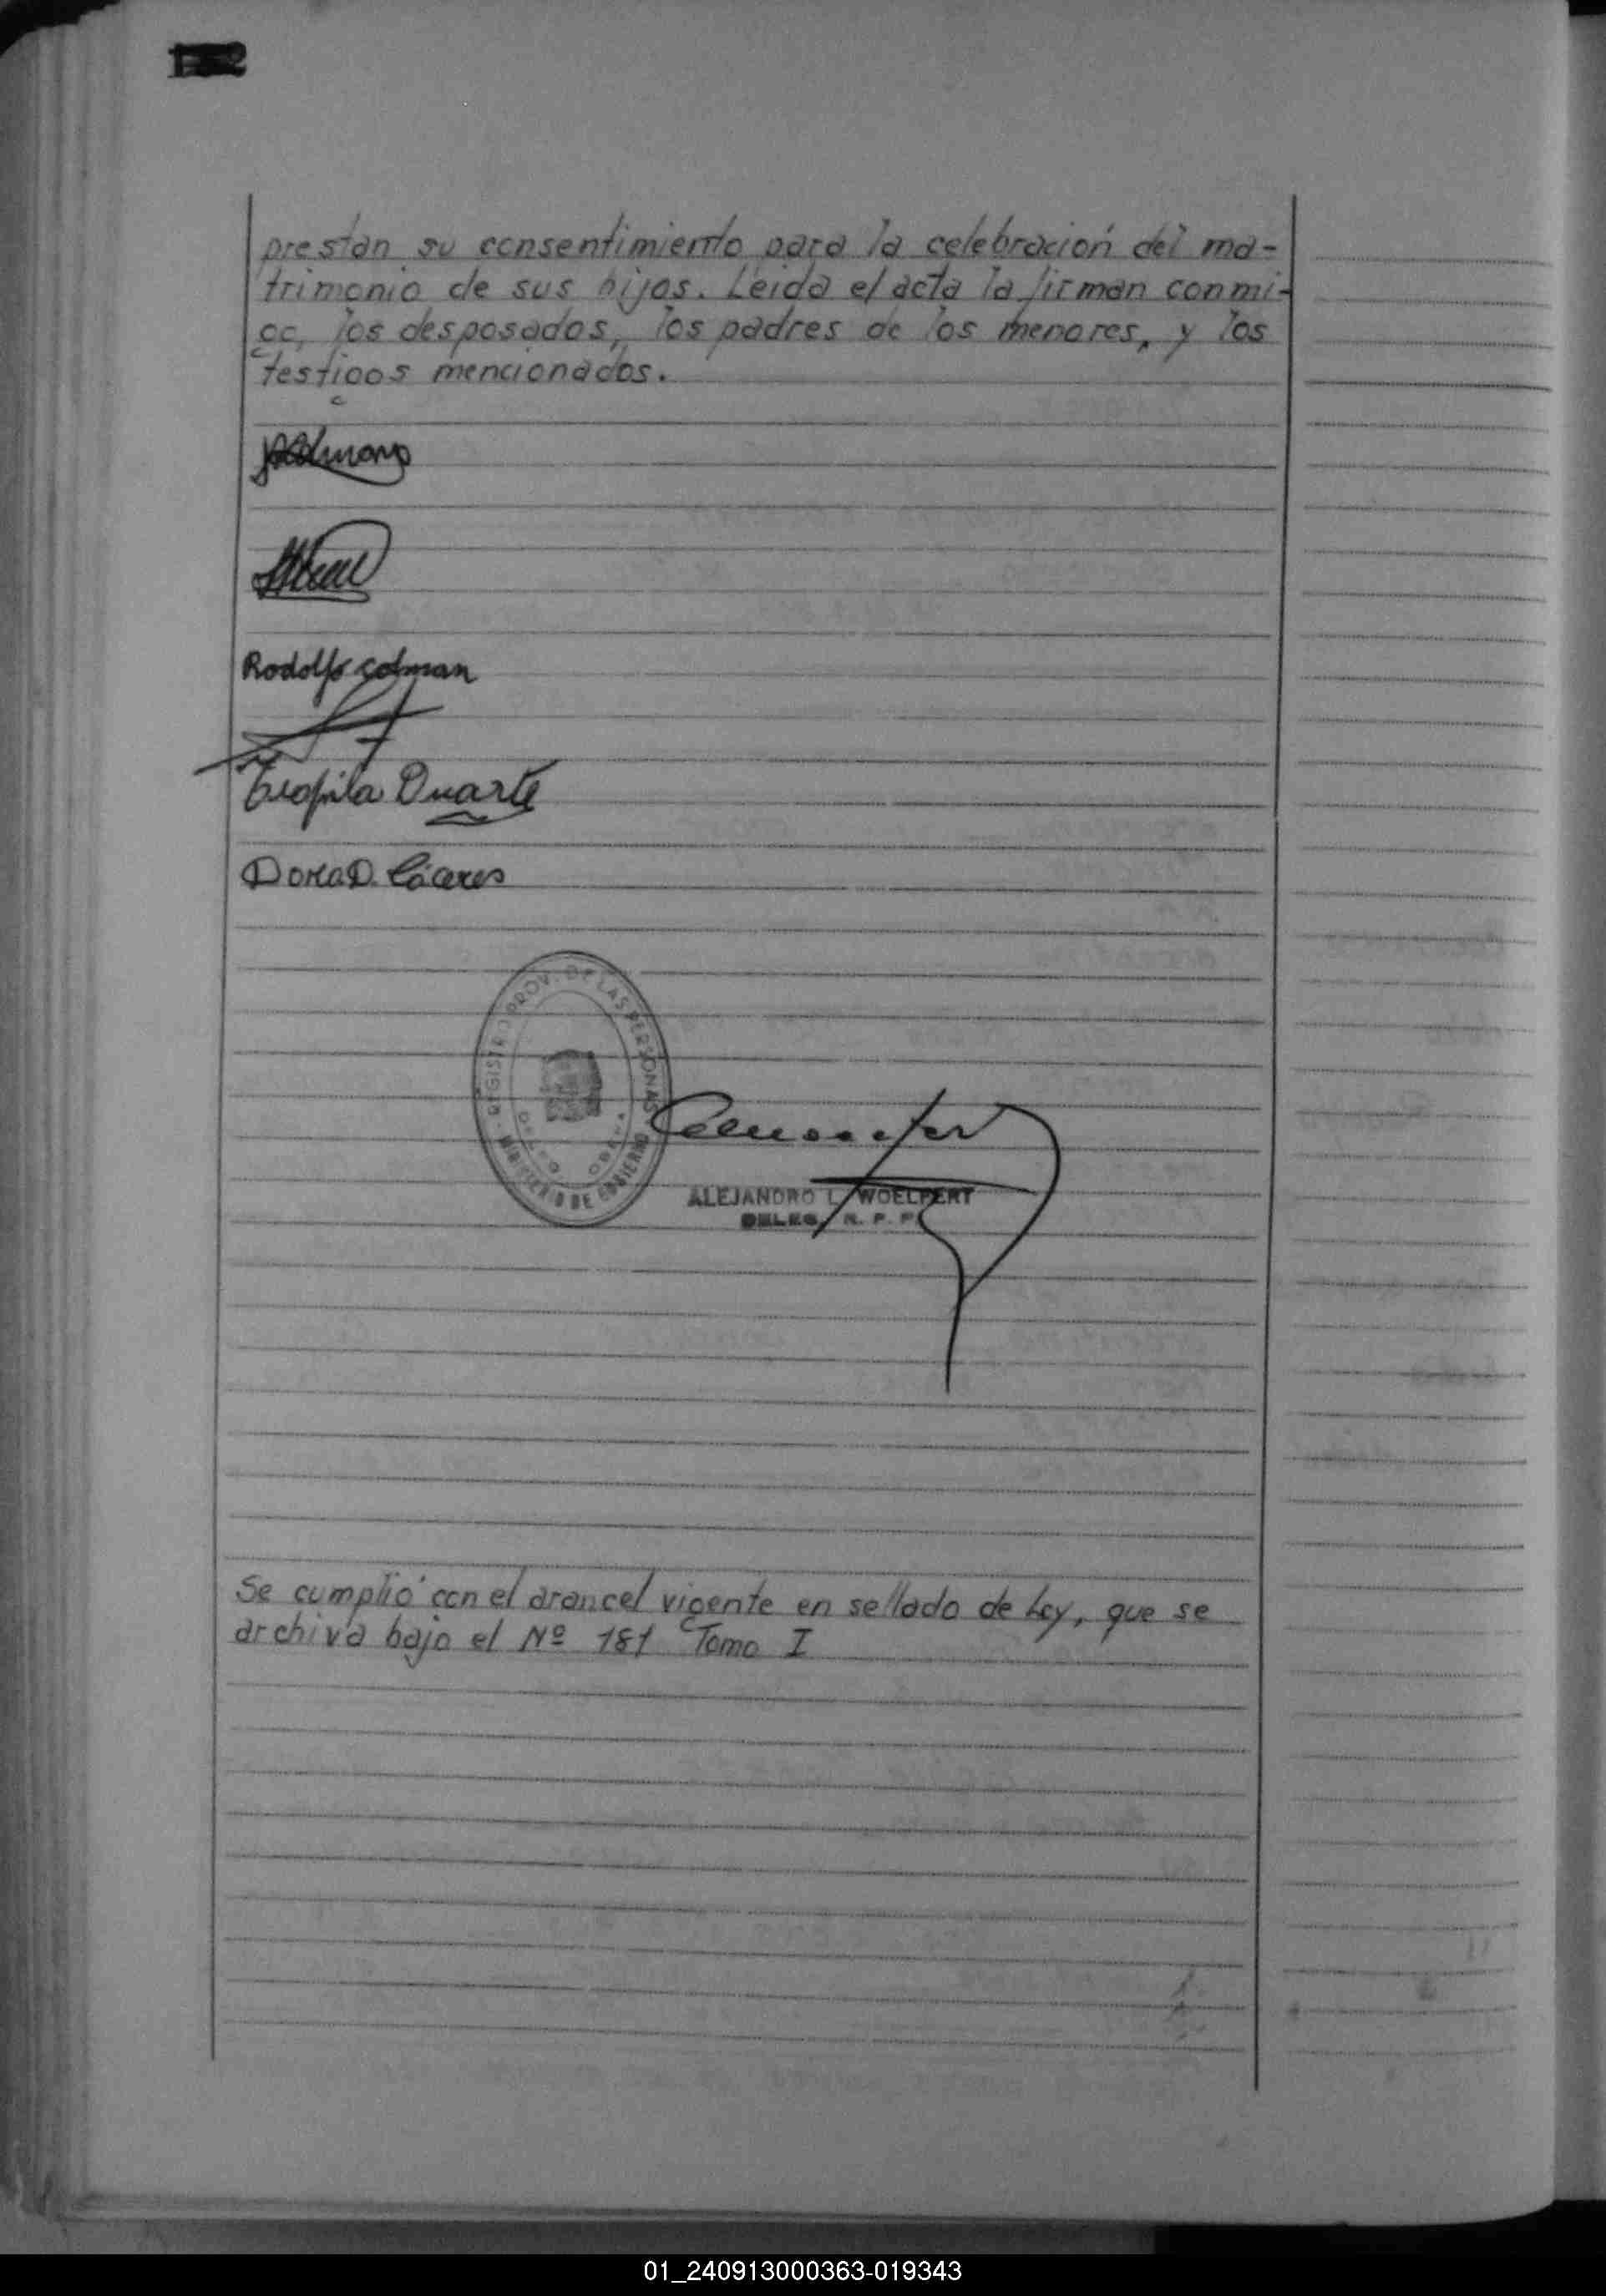 prestan su consentimiento para la celebración del ma-
trimonio de sus hijos. Leida el acta la firman conmi-
go, los desposados, los padres de los menores, y los
testigos mencionados.
Rodolfo Colman
Teofila Duarte
Dora D. Cáceres
REGISTRO PROV. DE LAS PERSONAS
MINISTERIO DE GOBIERNO
OBERA
ALEJANDRO L. WOELFERT
DELEG. R. P. P.
Se cumplió con el arancel vigente en sellado de Ley, que se
archiva bajo el Nº 181 Tomo I
01_240913000363-019343